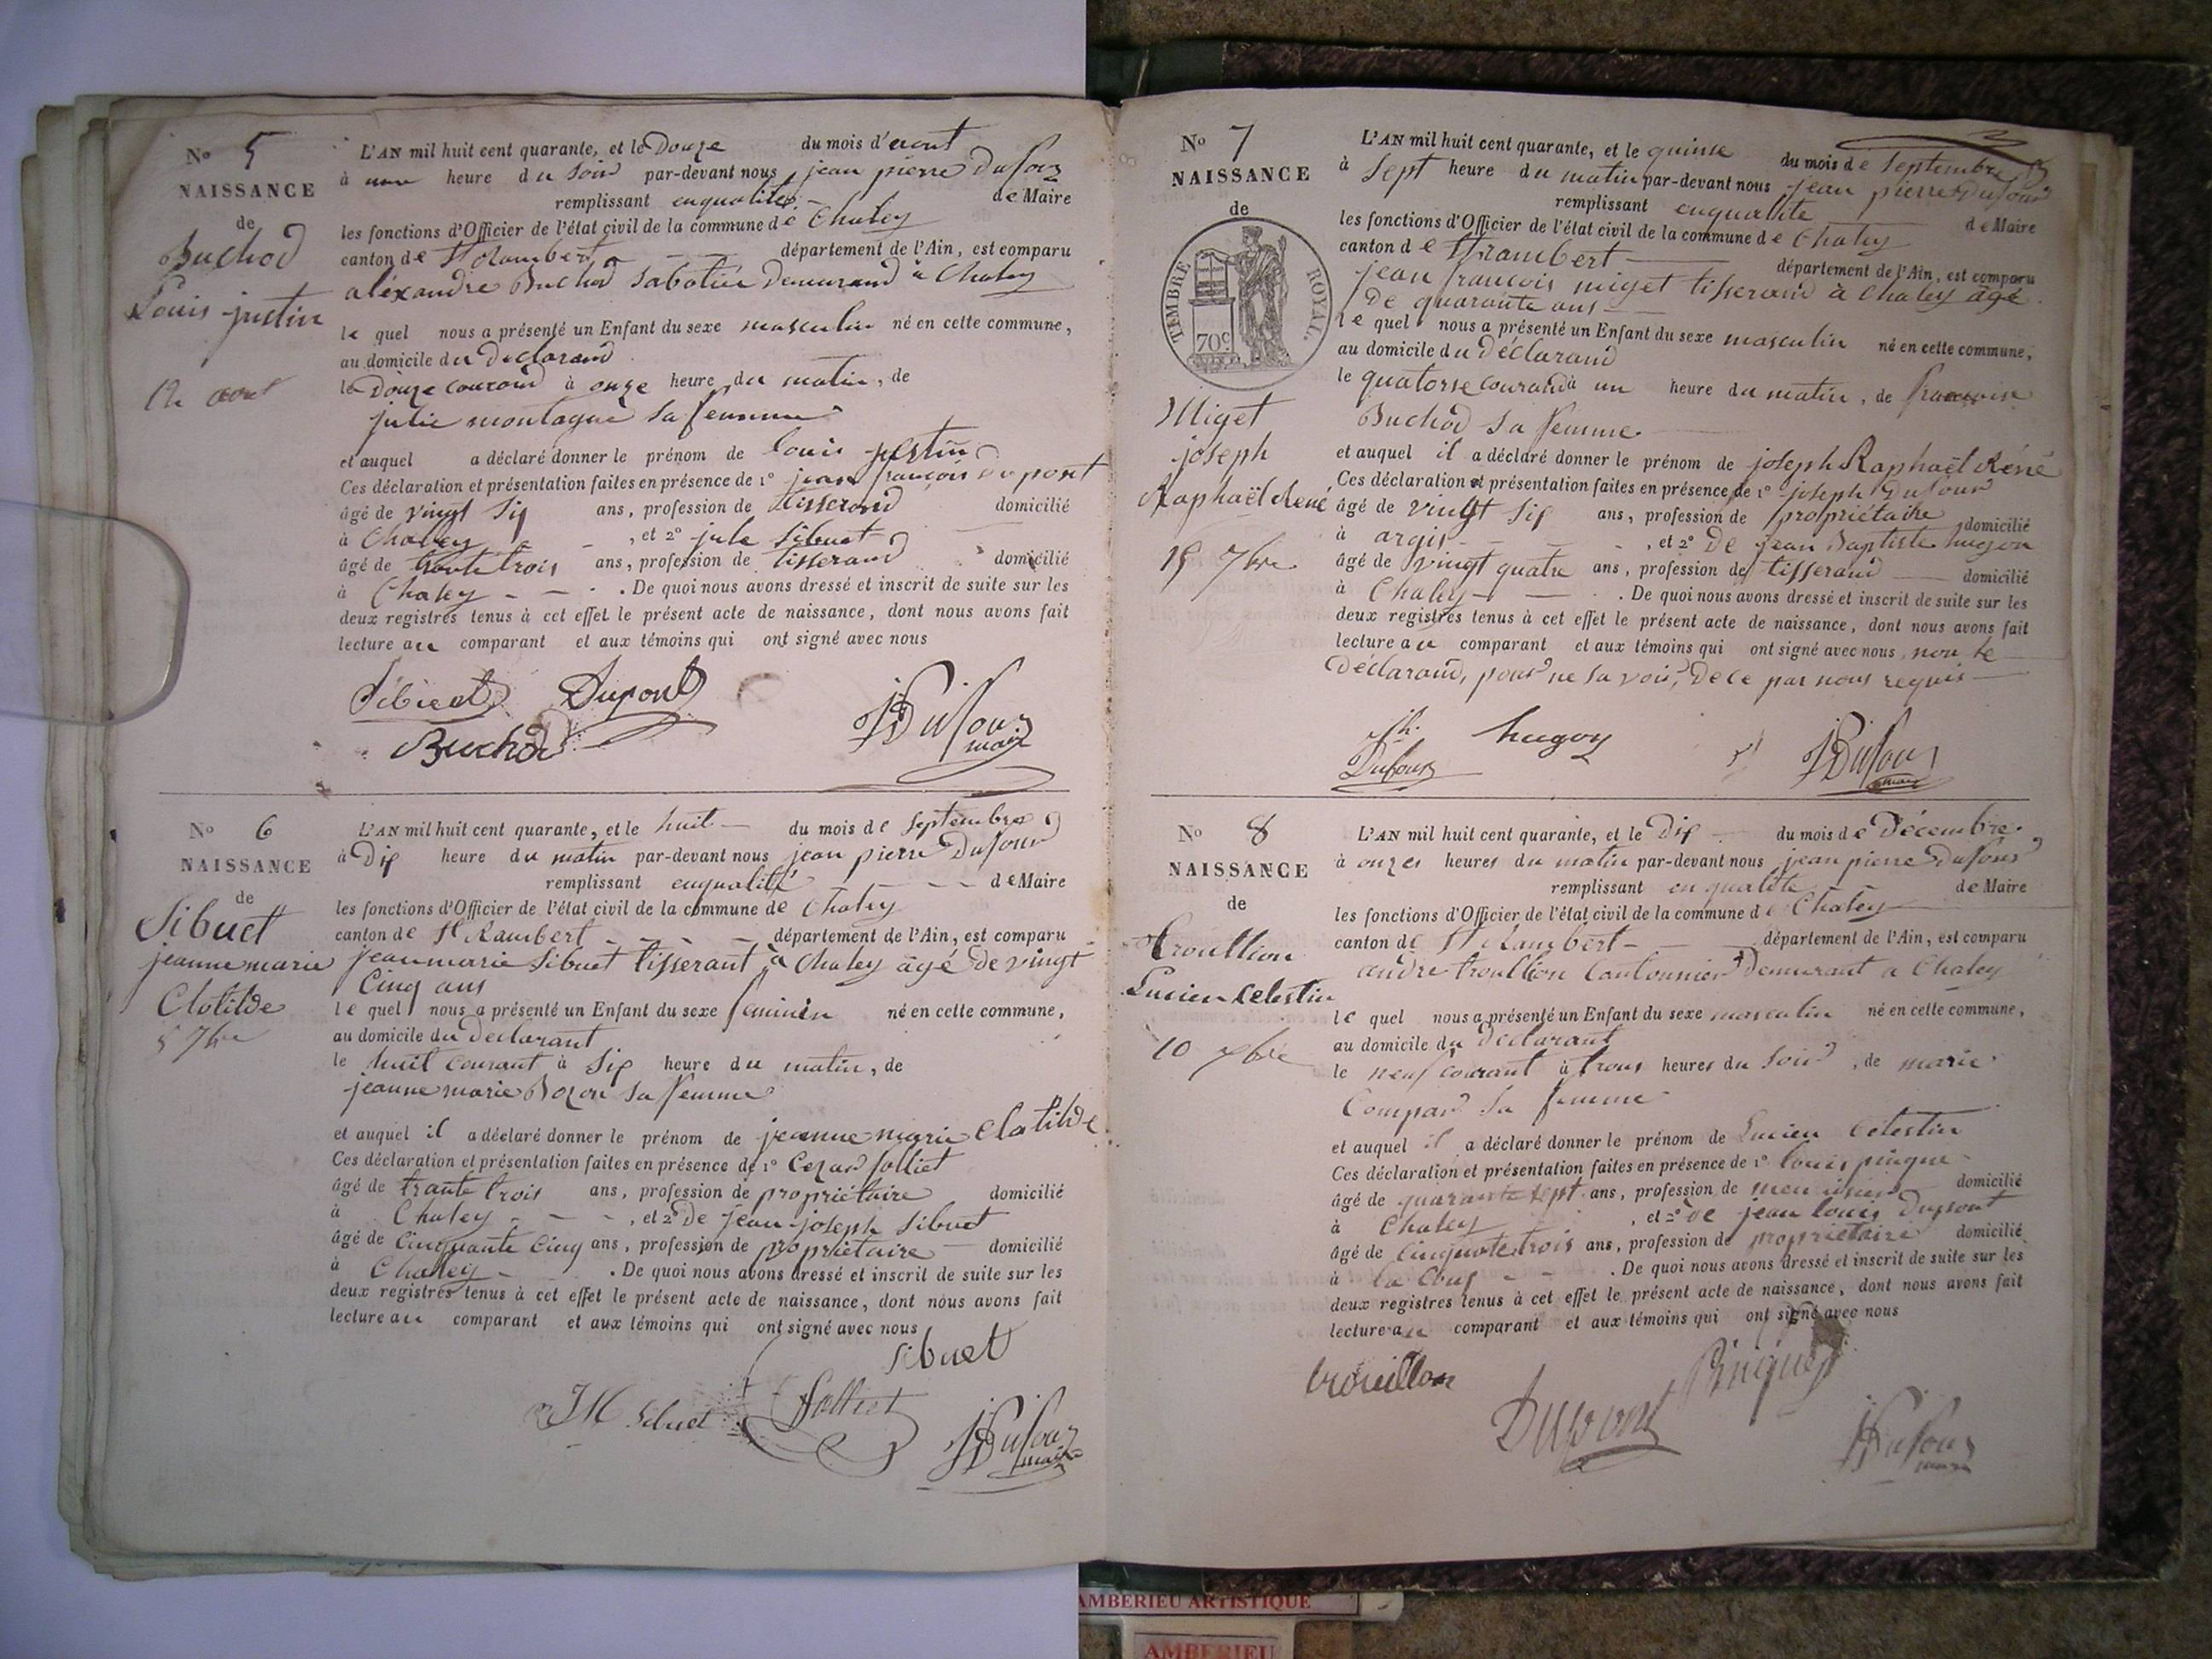 N° 5
NAISSANCE
de
Buchod
Louis justin
12 aout
L'AN mil huit cent quarante, et le Douze du mois d'aout
à une heure du soir par-devant nous jean pierre Dufour
remplissant enqualité de Maire
les fonctions d'Officier de l'état civil de la commune de Chaley
canton de St Rambert département de l'Ain, est comparu
aléxandre Buchod Sabotier Demurand à Chaley
le quel nous a présenté un Enfant du sexe masculin né en cette commune,
au domicile du Déclarand
le Douze courand à onze heure du matin, de
julie montagne sa femme
et auquel a déclaré donner le prénom de Louis justin
Ces déclaration et présentation faites en présence de 1° jean françois dupont
âgé de vingt six ans, profession de tisserand domicilié
à Chaley, et 2° jule Sibuet
âgé de trente trois ans, profession de tisserand domicilié
à Chaley - - . De quoi nous avons dressé et inscrit de suite sur les
deux registres tenus à cet effet le présent acte de naissance, dont nous avons fait
lecture au comparant et aux témoins qui ont signé avec nous
Sibuet Dupont
Buchod
JP Dufour
maire
N° 6
NAISSANCE
de
Sibuet
jeanne marie
Clotilde
7bre
L'AN mil huit cent quarante, et le huit du mois de Septembre
à Dix heure du matin par-devant nous jean pierre Dufour
remplissant enqualité de Maire
les fonctions d'Officier de l'état civil de la commune de Chaley
canton de St Rambert département de l'Ain, est comparu
jean marie Sibuet tisserant à Chaley âgé de vingt
Cinq ans
le quel nous a présenté un Enfant du sexe féminin né en cette commune,
au domicile du Déclarant
le huit courant à Six heure du matin, de
jeanne marie Bozon sa femme
et auquel il a déclaré donner le prénom de jeanne marie Clotilde
Ces déclaration et présentation faites en présence de 1° Cezar Jolliet
âgé de trante trois ans, profession de propriétaire domicilié
à Chaley - - -, et 2° De jean joseph Sibuet
âgé de Cinquante Cinq ans, profession de propriétaire domicilié
à Chaley - . De quoi nous avons dressé et inscrit de suite sur les
deux registres tenus à cet effet le présent acte de naissance, dont nous avons fait
lecture au comparant et aux témoins qui ont signé avec nous
Sibuet
JM Sibuet Jolliet
JP Dufour
maire
N° 7
NAISSANCE
de
TIMBRE ROYAL.
70c
Miget
joseph
Raphaël René
15 7bre
L'AN mil huit cent quarante, et le quinse du mois de Septembre
à Sept heure du matin par-devant nous jean pierre Dufour
remplissant enqualité de Maire
les fonctions d'Officier de l'état civil de la commune de Chaley
canton de St Rambert département de l'Ain, est comparu
jean françois miget tisserand à Chaley âgé
De quarante ans
le quel nous a présenté un Enfant du sexe masculin né en cette commune,
au domicile du Déclarand
le quatorse courand à un heure du matin, de françoise
Buchod sa femme
et auquel il a déclaré donner le prénom de joseph Raphaël Réné
Ces déclaration et présentation faites en présence de 1° joseph Dufour
âgé de vingt Six ans, profession de propriétaire domicilié
à argis - - -, et 2° De jean Baptiste hugon
âgé de vingt quatre ans, profession de tisserand domicilié
à Chaley - . De quoi nous avons dressé et inscrit de suite sur les
deux registres tenus à cet effet le présent acte de naissance, dont nous avons fait
lecture au comparant et aux témoins qui ont signé avec nous non le
Déclarand, pour ne savoir, De ce par nous requis
jh. Dufour hugon JP Dufour
maire
N° 8
NAISSANCE
de
Troullion
Lucien Celestin
10 xbre
L'AN mil huit cent quarante, et le Dix du mois de Décembre
à onzes heures du matin par-devant nous jean pierre Dufour
remplissant en qualité de Maire
les fonctions d'Officier de l'état civil de la commune de Chaley
canton de St Rambert - département de l'Ain, est comparu
andré troullion Cantonnier Demurant a Chaley
le quel nous a présenté un Enfant du sexe masculin né en cette commune,
au domicile du Déclarant
le neuf courant à trous heures du Soir, de marie
Compard sa femme
et auquel il a déclaré donner le prénom de Lucien Celestin
Ces déclaration et présentation faites en présence de 1° Louis pinque
âgé de quarante sept ans, profession de menuisier domicilié
à Chaley, et 2° de jean Louis Dupont
âgé de Cinquante trois ans, profession de propriétaire domicilié
à la - - . De quoi nous avons dressé et inscrit de suite sur les
deux registres tenus à cet effet le présent acte de naissance, dont nous avons fait
lecture au comparant et aux témoins qui ont signé avec nous
trouillon Pinque
Dupont
JP Dufour
maire
AMBERIEU ARTISTIQUE
AMBERIEU